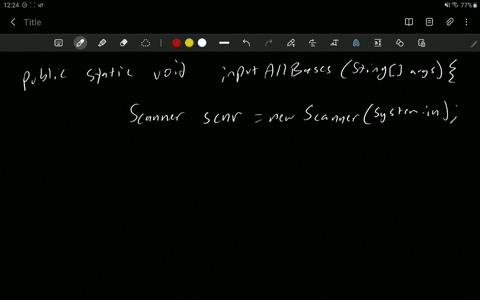 12:24
77%
Title
public static void inputAllBases (String[] args) {
Scanner scnr = new Scanner(System.in);